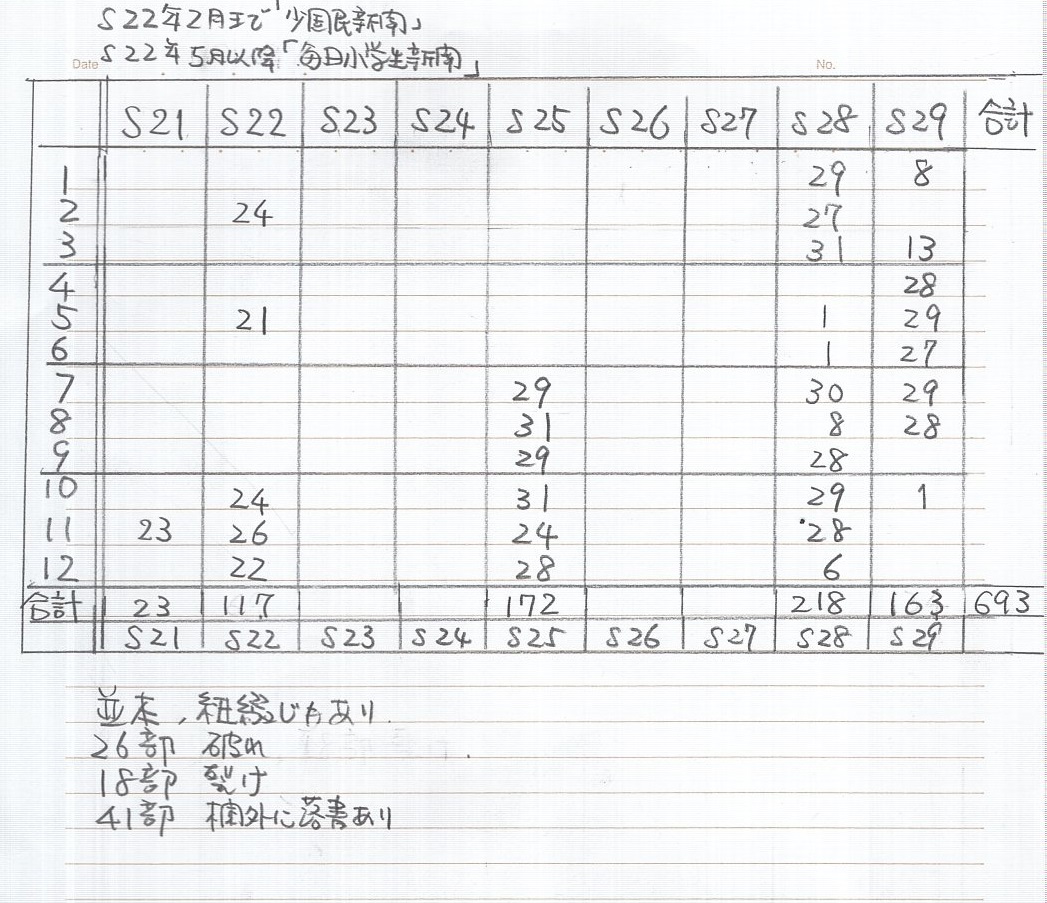 S22年2月まで「少国民新聞」
S22年5月以降「毎日小学生新聞」
Date No.
S21 S22 S23 S24 S25 S26 S27 S28 S29 合計
1 29 8
2 24 27
3 31 13
4 28
5 21 1 29
6 1 27
7 29 30 29
8 31 8 28
9 29 28
10 24 31 29 1
11 23 26 24 28
12 22 28 6
合計 23 117 172 218 163 693
S21 S22 S23 S24 S25 S26 S27 S28 S29
並本、紐綴じ穴あり.
26部 破れ
18部 裂け
41部 欄外に落書あり